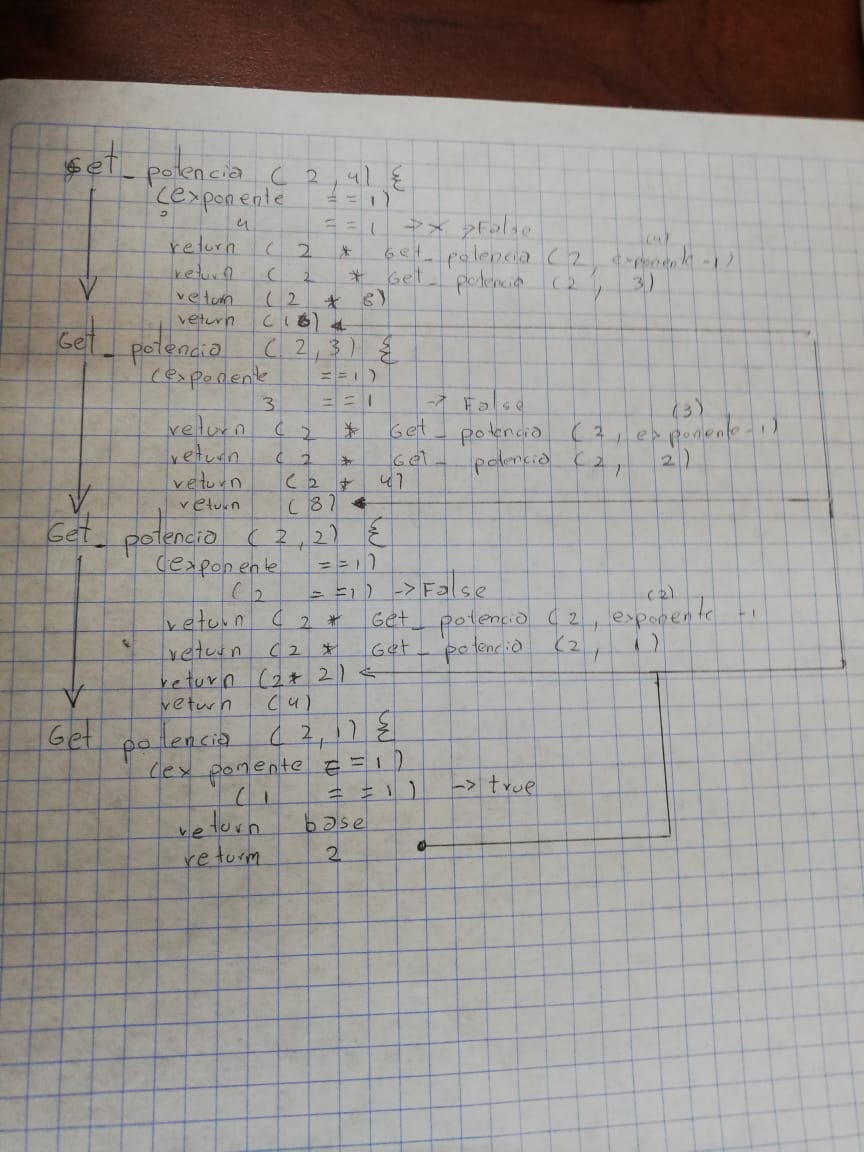 Get_potencia ( 2 , 4) {
(exponente == 1)
4 == 1 -> x >False
(4)
return ( 2 * Get_potencia ( 2, exponente -1)
return ( 2 * Get_potencia (2 , 3)
return (2 * 8)
return (16)
Get_potencia ( 2,3) {
(exponente ==1)
3 ==1 -> False
(3)
return ( 2 * Get_potencia ( 2, exponente -1)
return ( 2 * Get_potencia (2, 2)
return (2 * 4)
return (8)
Get_potencia ( 2,2) {
(exponente ==1)
(2 ==1) ->False
(2)
return ( 2 * Get_potencia (2, exponente -1
return (2 * Get_potencia (2, 1)
return (2* 2)
return (4)
Get potencia ( 2,1) {
(exponente ==1)
( 1 ==1) -> true
return base
return 2